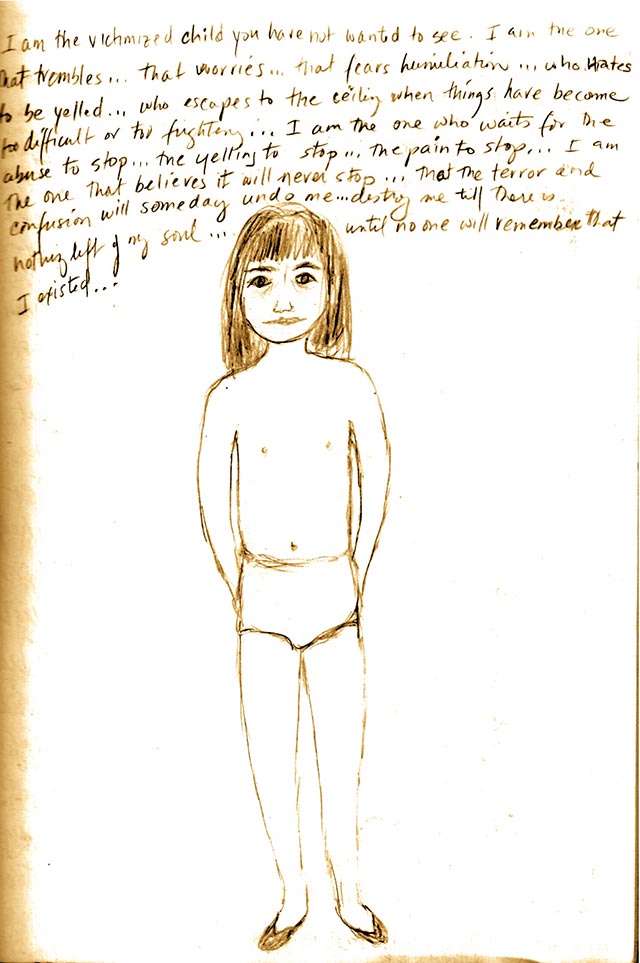 I am the victimized child you have not wanted to see. I am the one
that trembles... that worries... that fears humiliation... who hates
to be yelled... who escapes to the ceiling when things have become
too difficult or too frightening... I am the one who waits for the
abuse to stop... the yelling to stop... the pain to stop... I am
the one that believes it will never stop... that the terror and
confusion will someday undo me... destroy me till there is
nothing left of my soul... until no one will remember that
I existed...